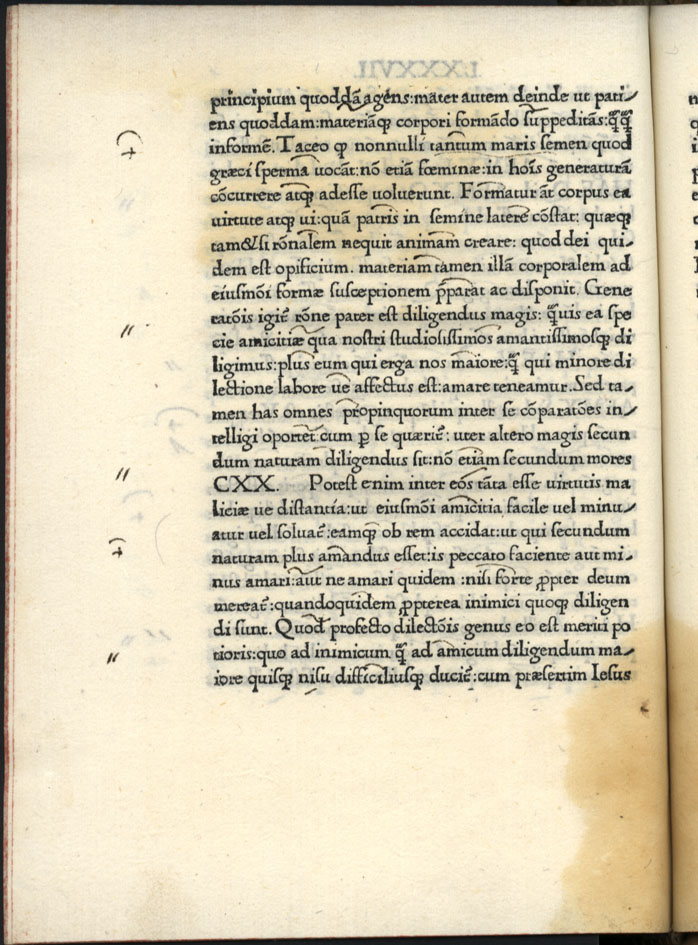 principium quoddã agens:mater autem deinde ut pati⸗
ens quoddam:materiãqꝫ corpori formãdo suppeditãs:q̃q̃
informẽ. Taceo ꝙ nonnulli tantum maris semen quod
græci sperma uocãt:nõ etiã fœminæ:in hoĩs generaturã
cõcurrere atqꝫ adesse uoluerunt. Formatur ãt corpus ea
uirtute atqꝫ ui:quã patris in semine latere cõstat: quæqꝫ
tam&si rõnalem nequit animam creare: quod dei qui⸗
dem est opificium. materiam tamen illã corporalem ad
eiusmõi formæ susceptionem p̃parat ac disponit. Gene
ratõis igit̃ rõne pater est diligendus magis: q̃uis ea spe
cie amicitiæ qua nostri studiosissimos amantissimosqꝫ di
ligimus:plus eum qui erga nos maiore:q̃ qui minore di
lectione labore ue affectus est:amare teneamur. Sed ta⸗
men has omnes propinquorum inter se cõparatões in⸗
telligi oportet:cum ꝑ se quærit̃: uter altero magis secun
dum naturam diligendus sit:nõ etiam secundum mores
CXX. Potest enim inter eos tãta esse uirtutis ma
liciæ ue distantia:ut eiusmõi amicitia facile uel minu⸗
atur uel soluat̃:eamqꝫ ob rem accidat:ut qui secundum
naturam plus amandus esset:is peccato faciente aut mi⸗
nus amari:aut ne amari quidem :nisi forte ꝓpter deum
mereat̃:quandoquidem ꝓpterea inimici quoqꝫ diligen
di sunt. Quod profecto dilectõis genus eo est meriti po
tioris:quo ad inimicum q̃ ad amicum diligendum ma⸗
iore quisqꝫ nisu difficiliusqꝫ ducit̃:cum præsertim Iesus